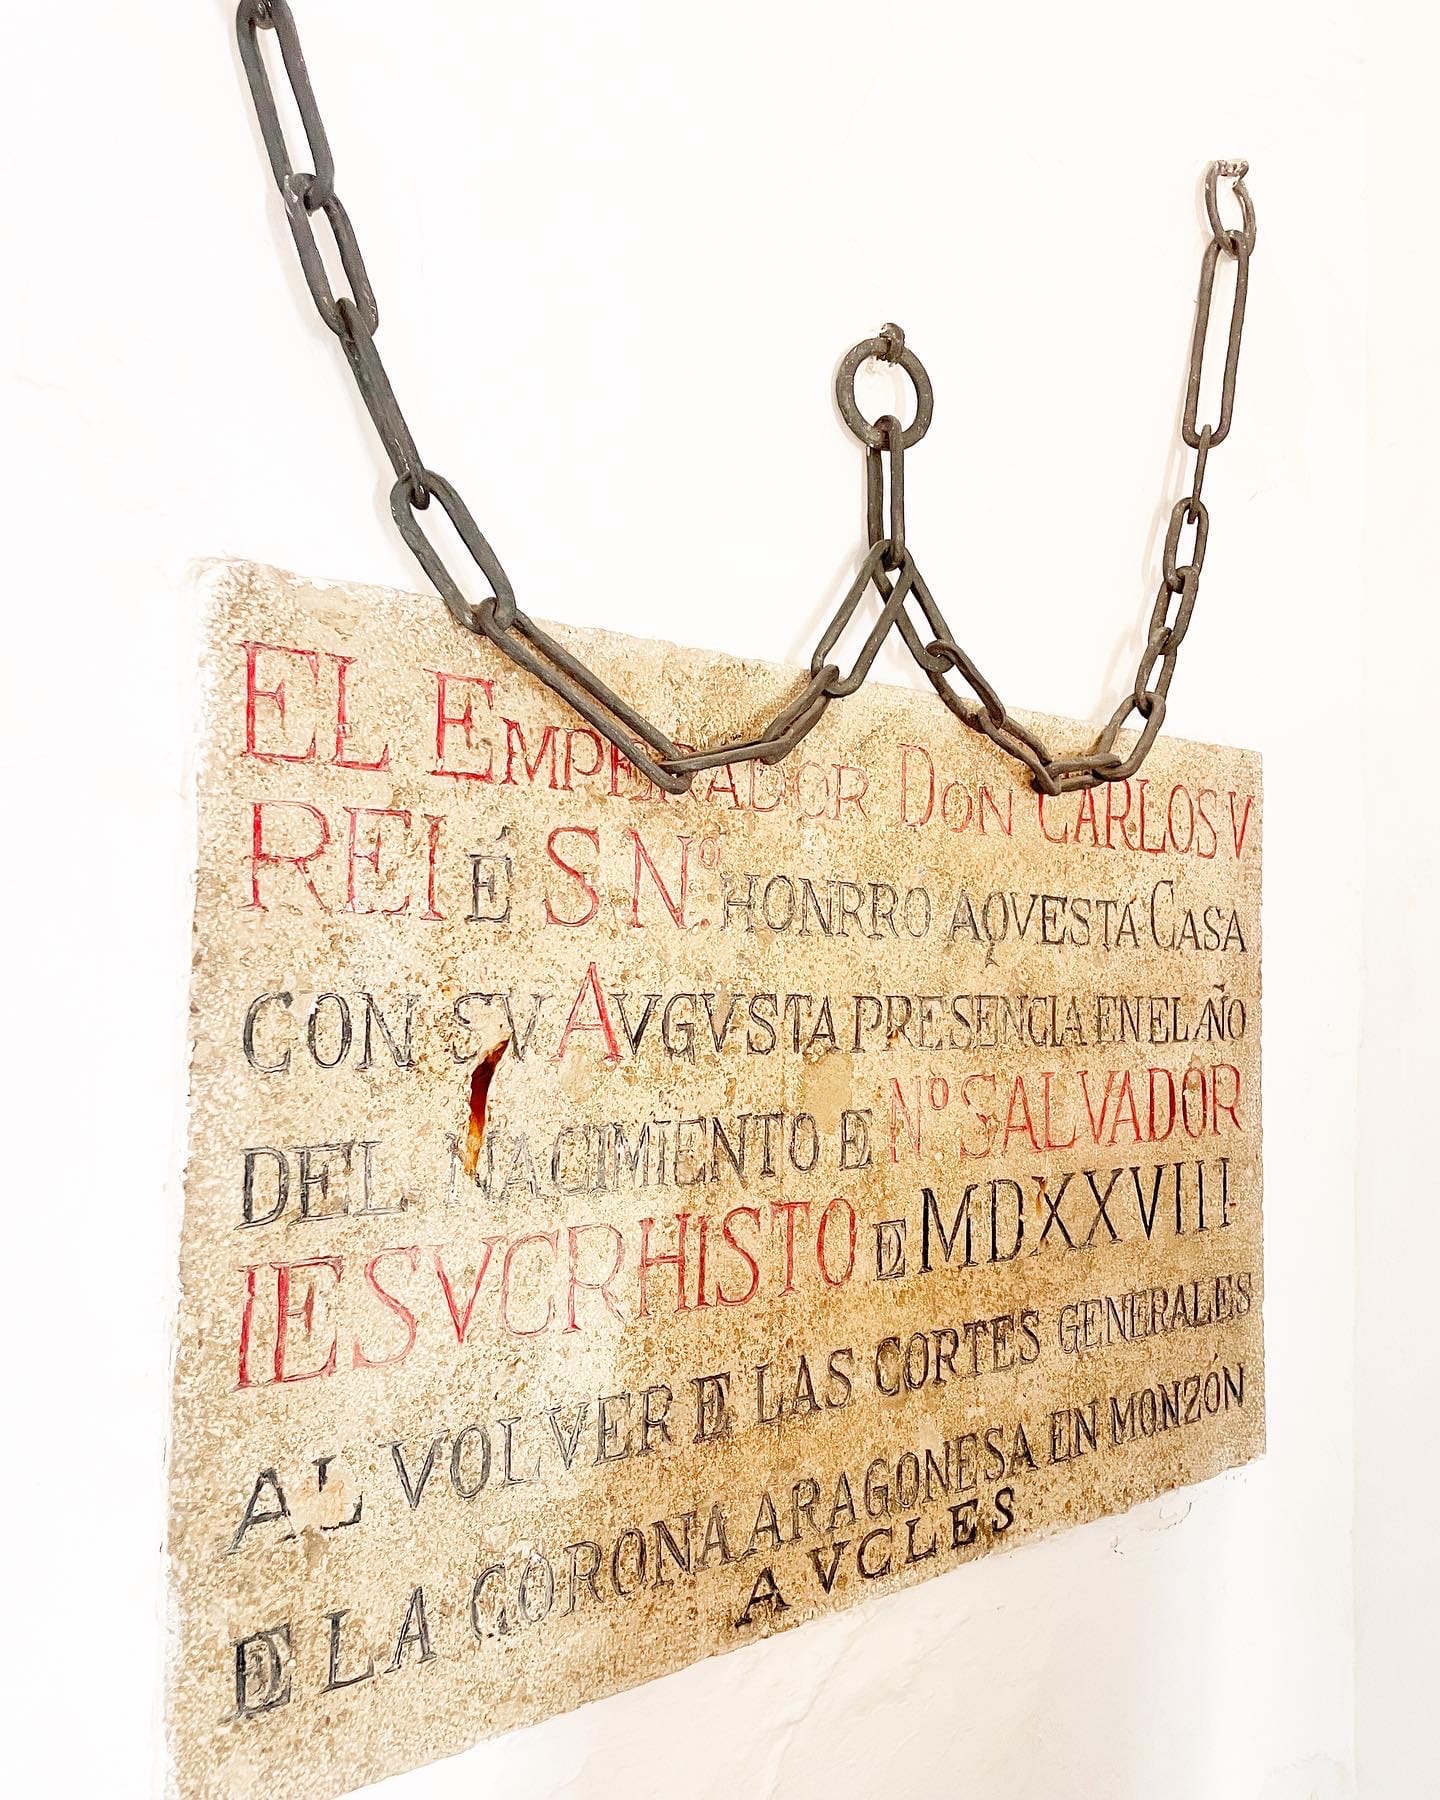 EL EMPERADOR DON CARLOS V
REI É S Nº. HONRRO AQVESTÁ CASA
CON SV AVGVSTA PRESENCIA EN EL AÑO
DEL NACIMIENTO DE Nº SALVADOR
IESVCRHISTO DE MDXXVIII
AL VOLVER DE LAS CORTES GENERALES
DE LA CORONA ARAGONESA EN MONZÓN
A VCLES